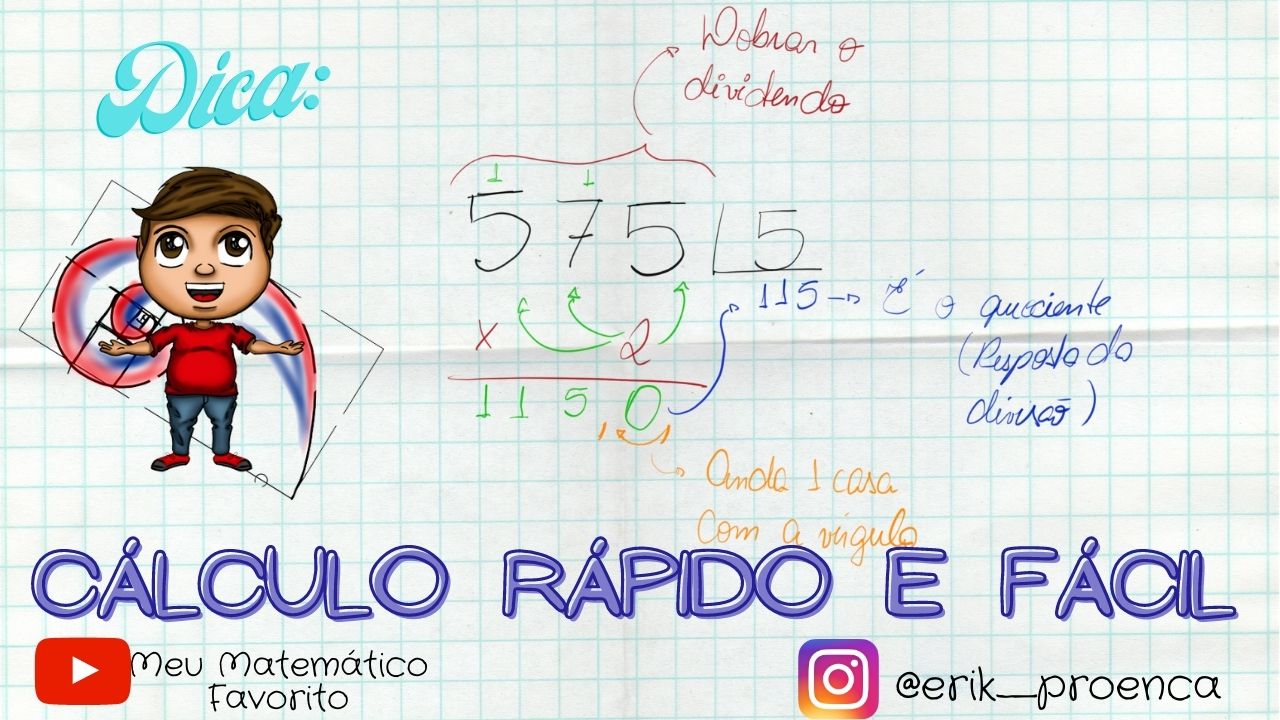 Dica:
Dobrar o
dividendo
1 1
575 5
115 → É o quociente
(Resposta da
divisão)
x 2
1150
Anda 1 casa
com a vírgula
CÁLCULO RÁPIDO E FÁCIL
Meu Matemático
Favorito
@erik_proenca